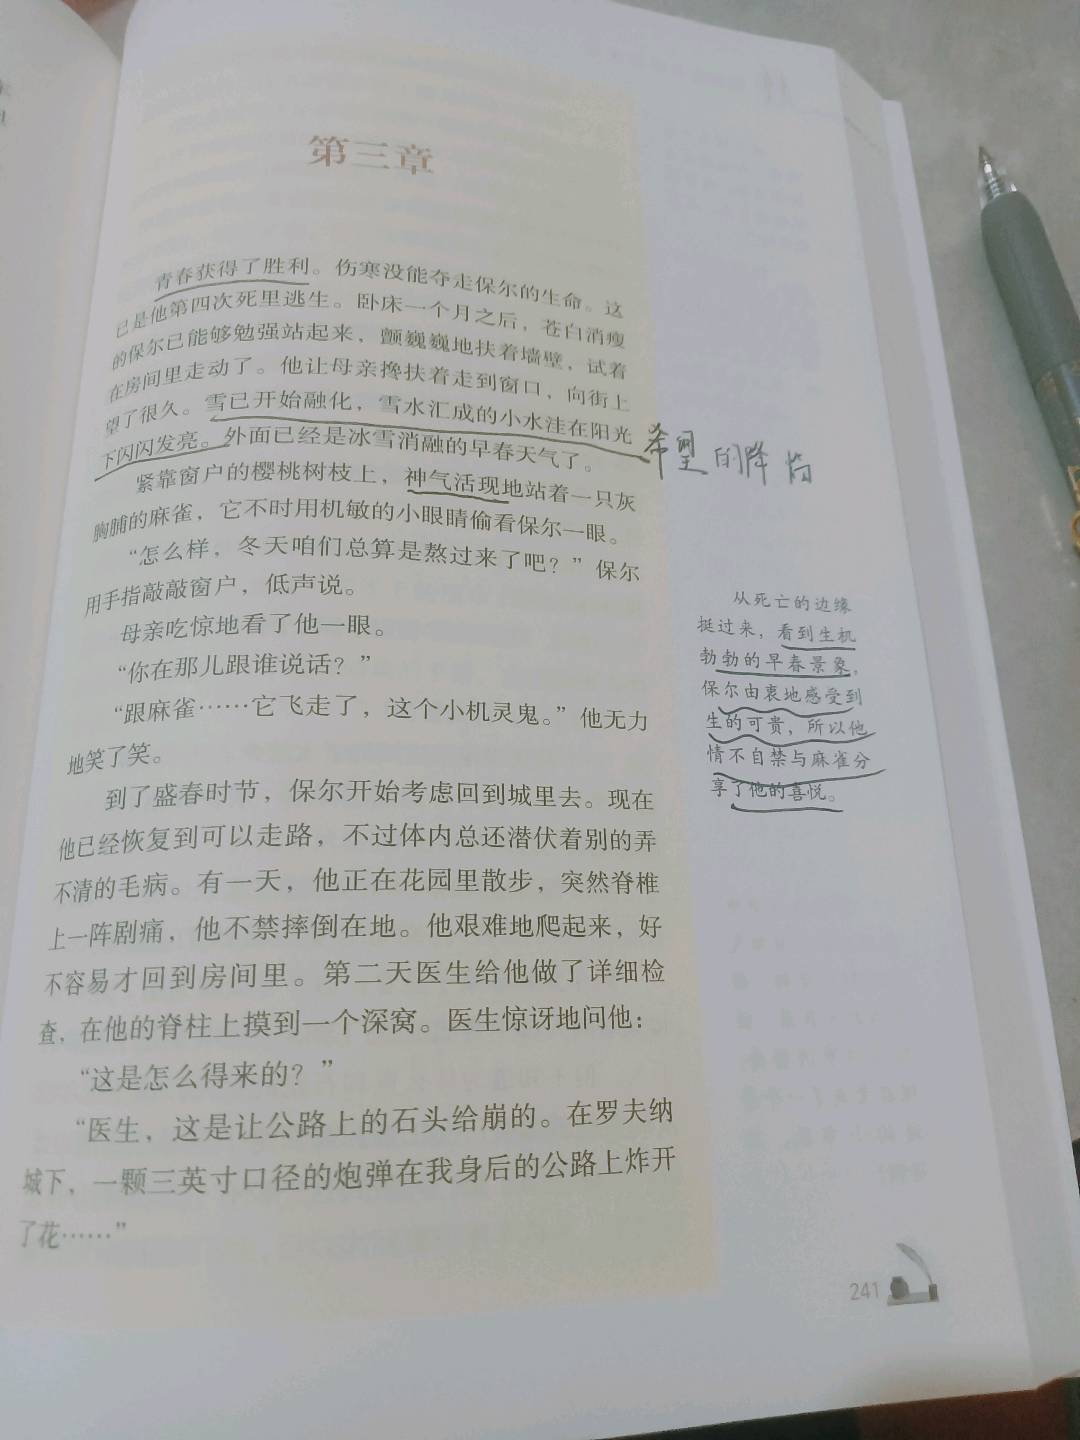 第三章
青春获得了胜利。伤寒没能夺走保尔的生命。这
已是他第四次死里逃生。卧床一个月之后，苍白消瘦
的保尔已能够勉强站起来，颤巍巍地扶着墙壁，试着
在房间里走动了。他让母亲搀扶着走到窗口，向街上
望了很久。雪已开始融化，雪水汇成的小水洼在阳光
下闪闪发亮。外面已经是冰雪消融的早春天气了。
紧靠窗户的樱桃树枝上，神气活现地站着一只灰
胸脯的麻雀，它不时用机敏的小眼睛偷看保尔一眼。
“怎么样，冬天咱们总算是熬过来了吧？”保尔
用手指敲敲窗户，低声说。
母亲吃惊地看了他一眼。
“你在那儿跟谁说话？”
“跟麻雀……它飞走了，这个小机灵鬼。”他无力
地笑了笑。
到了盛春时节，保尔开始考虑回到城里去。现在
他已经恢复到可以走路，不过体内总还潜伏着别的弄
不清的毛病。有一天，他正在花园里散步，突然脊椎
上一阵剧痛，他不禁摔倒在地。他艰难地爬起来，好
不容易才回到房间里。第二天医生给他做了详细检
查，在他的脊柱上摸到一个深窝。医生惊讶地问他：
“这是怎么得来的？”
“医生，这是让公路上的石头给崩的。在罗夫纳
城下，一颗三英寸口径的炮弹在我身后的公路上炸开
了花……”
希望的降临
从死亡的边缘
挺过来，看到生机
勃勃的早春景象，
保尔由衷地感受到
生的可贵，所以他
情不自禁与麻雀分
享了他的喜悦。
241